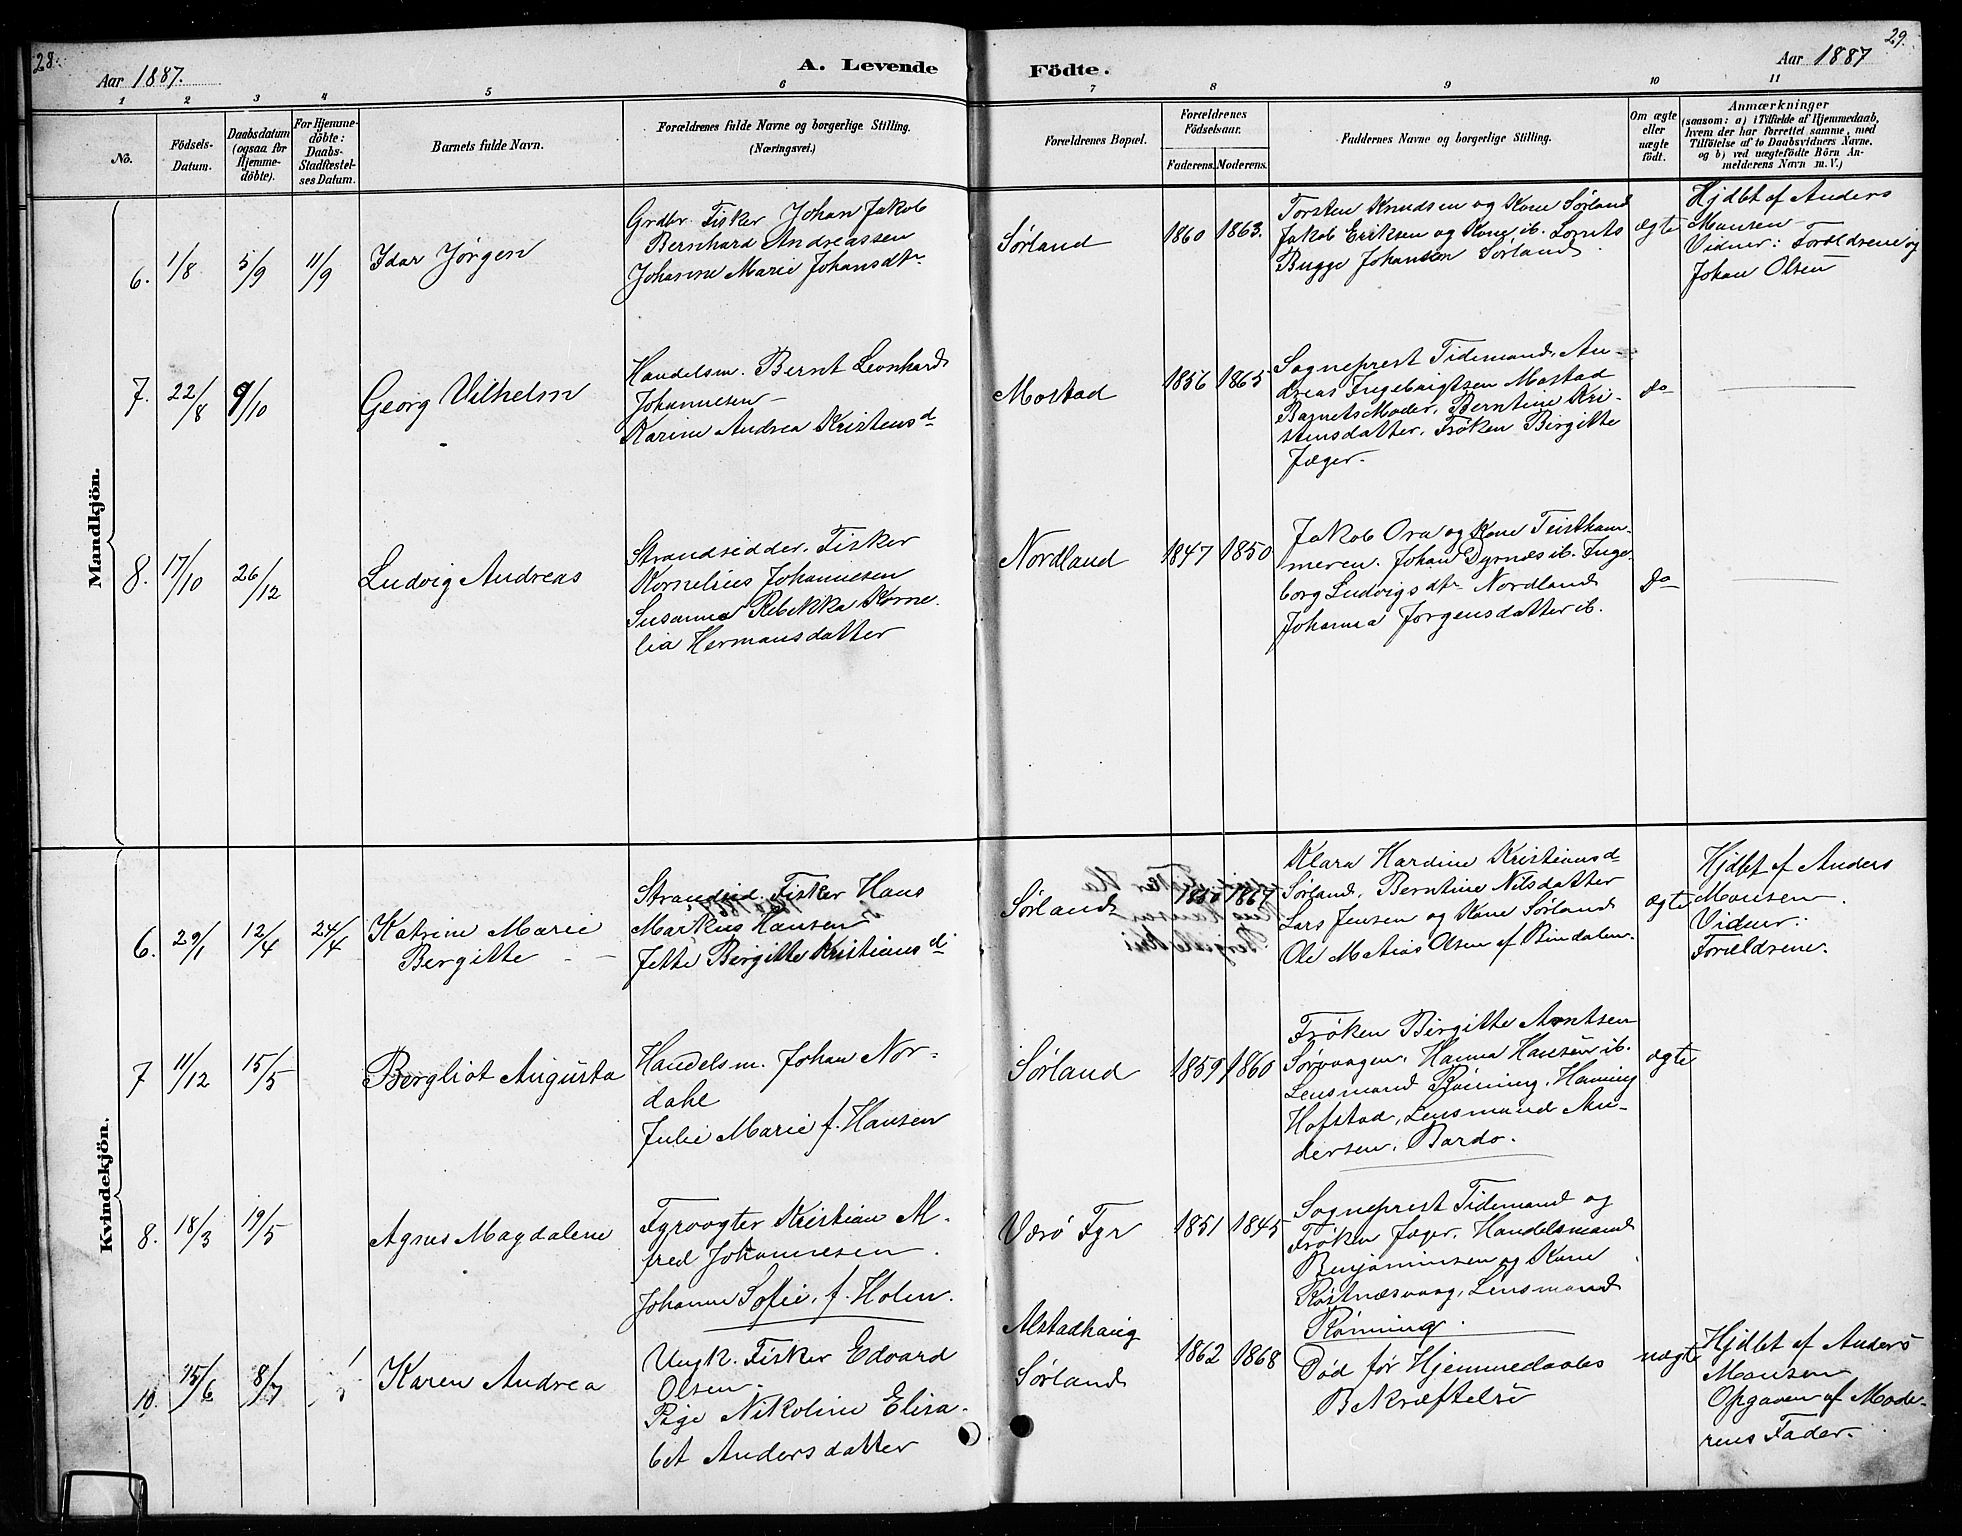 28.
29.
Aar 1887.
A. Levende
Födte.
Aar 1887
1 2 3 4 5 6 7 8 9 10 11
No.
Födsels-
Datum.
Daabsdatum
(ogsaa for
Hjemme-
döbte).
For Hjemme-
döbte:
Daabs-
Stadfæstel-
ses Datum.
Barnets fulde Navn.
Forældrenes fulde Navne og borgerlige Stilling.
(Næringsvei.)
Forældrenes Bopæl.
Forældrenes
Födselsaar.
Faderens. Moderens.
Faddernes Navne og borgerlige Stilling.
Om ægte
eller
uægte
födt.
Anmærkninger
(saasom: a) i Tilfælde af Hjemmedaab,
hvem der har forrettet samme, med
Tilföielse af to Daabsvidners Navne.
og b) ved uægtefödte Börn An-
melderens Navn m. V.)
Mandkjön.
6. 1/8 5/9 11/9
Idar Jørgen
Grdbr. Fisker Johan Jakob
Bernhard Andreassen
Johanne Marie Johansdtr
Sørland
1860 1863.
Torsten Knudsen og Kone Sørland
Jakob Eriksen og Kone ib. Lornts
Bugge Johansen Sørland
ægte
Hjdbt af Anders
Monsen
Vidner: Forældrene og
Johan Olsen
7. 22/8 9/10
Georg Vilhelm
Handelsm. Bernt Leonhard
Johannesen
Karine Andrea Kristensd
Mostad
1856 1865
Sogneprest Tidemand, An-
dreas Ingebrigtsen Mostad
Barnets Moder, Berntine Kri-
stensdatter, Frøken Birgitte
Jæger.
do
8. 17/10 26/12
Ludvig Andreas
Strandsidder, Fisker
Kornelius Johannesen
Susanna Rebekka Korne-
lia Hermansdatter
Nordland
1847 1850
Jakob Ora og Kone Teistham-
meren. Johan Dyrnes ib. Inge-
borg Ludvigsdtr Nordland
Johanna Jørgensdatter ib.
do
Kvindekjön.
6. 29/1 12/4 24/4
Katrine Marie
Bergitte
Strandsid. Fisker Hans
Markus Hansen
Jette Birgitte Kristiansd
Sørland
1867
Klara Hardine Kristiansd
Sørland, Berntine Nilsdatter
Lars Jensen og Kone Sørland
Ole Matias Olsen af Bindalen.
ægte
Hjdbt af Anders
Monsen.
Vidner:
Forældrene.
7 11/12 15/5
Bergliot Augusta
Handelsm. Johan Nor-
dahl
Julie Marie f. Hansen
Sørland
1859 1860
Frøken Birgitte Arntsen
Sørvaagen, Hanna Hansen ib.
Lensmand Rønning, Henning
Hofstad, Lensmand An-
dersen, Bardo.
ægte
8. 18/3 19/5
Agnes Magdalene
Fyrvogter Kristian M.
fred Johannesen
Johanne Sofie, f. Holm.
Værø Fyr
1851 1845
Sogneprest Tidemand og
Frøken Jæger, Handelsmand
Benjaminsen og Kone
Røstnæsvaag, Lensmand
Rønning.
10. 15/6 8/7
Karen Andrea
Ungk. Fisker Edvard
Olsen.
Pige Nikoline Elisa-
bet Andersdatter
Alstadhaug
Sørland
1862 1868
Død før Hjemmedaabs
Bekræftelse
uægte
Hjdbt af Anders
Monsen
Opgaven af Mode-
rens Fader.